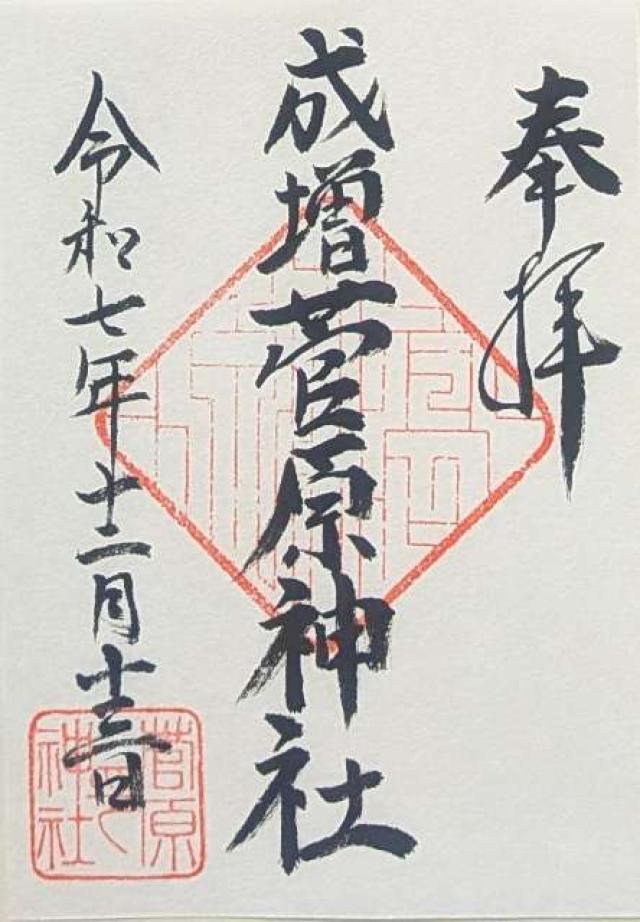 奉拝
成増菅原神社
令和七年十二月十三日
菅原
神社